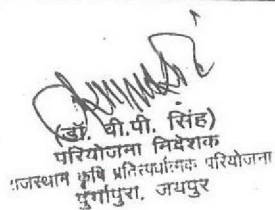 (डॉ. वी.पी. सिंह)
परियोजना निदेशक
राजस्थान कृषि प्रतिस्पर्धात्मक परियोजना
दुर्गापुरा, जयपुर